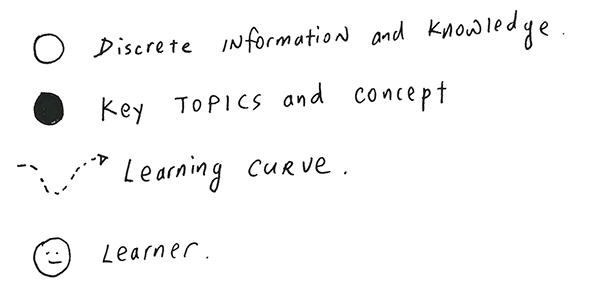 Discrete information and knowledge.
Key Topics and concept
Learning curve.
Learner.